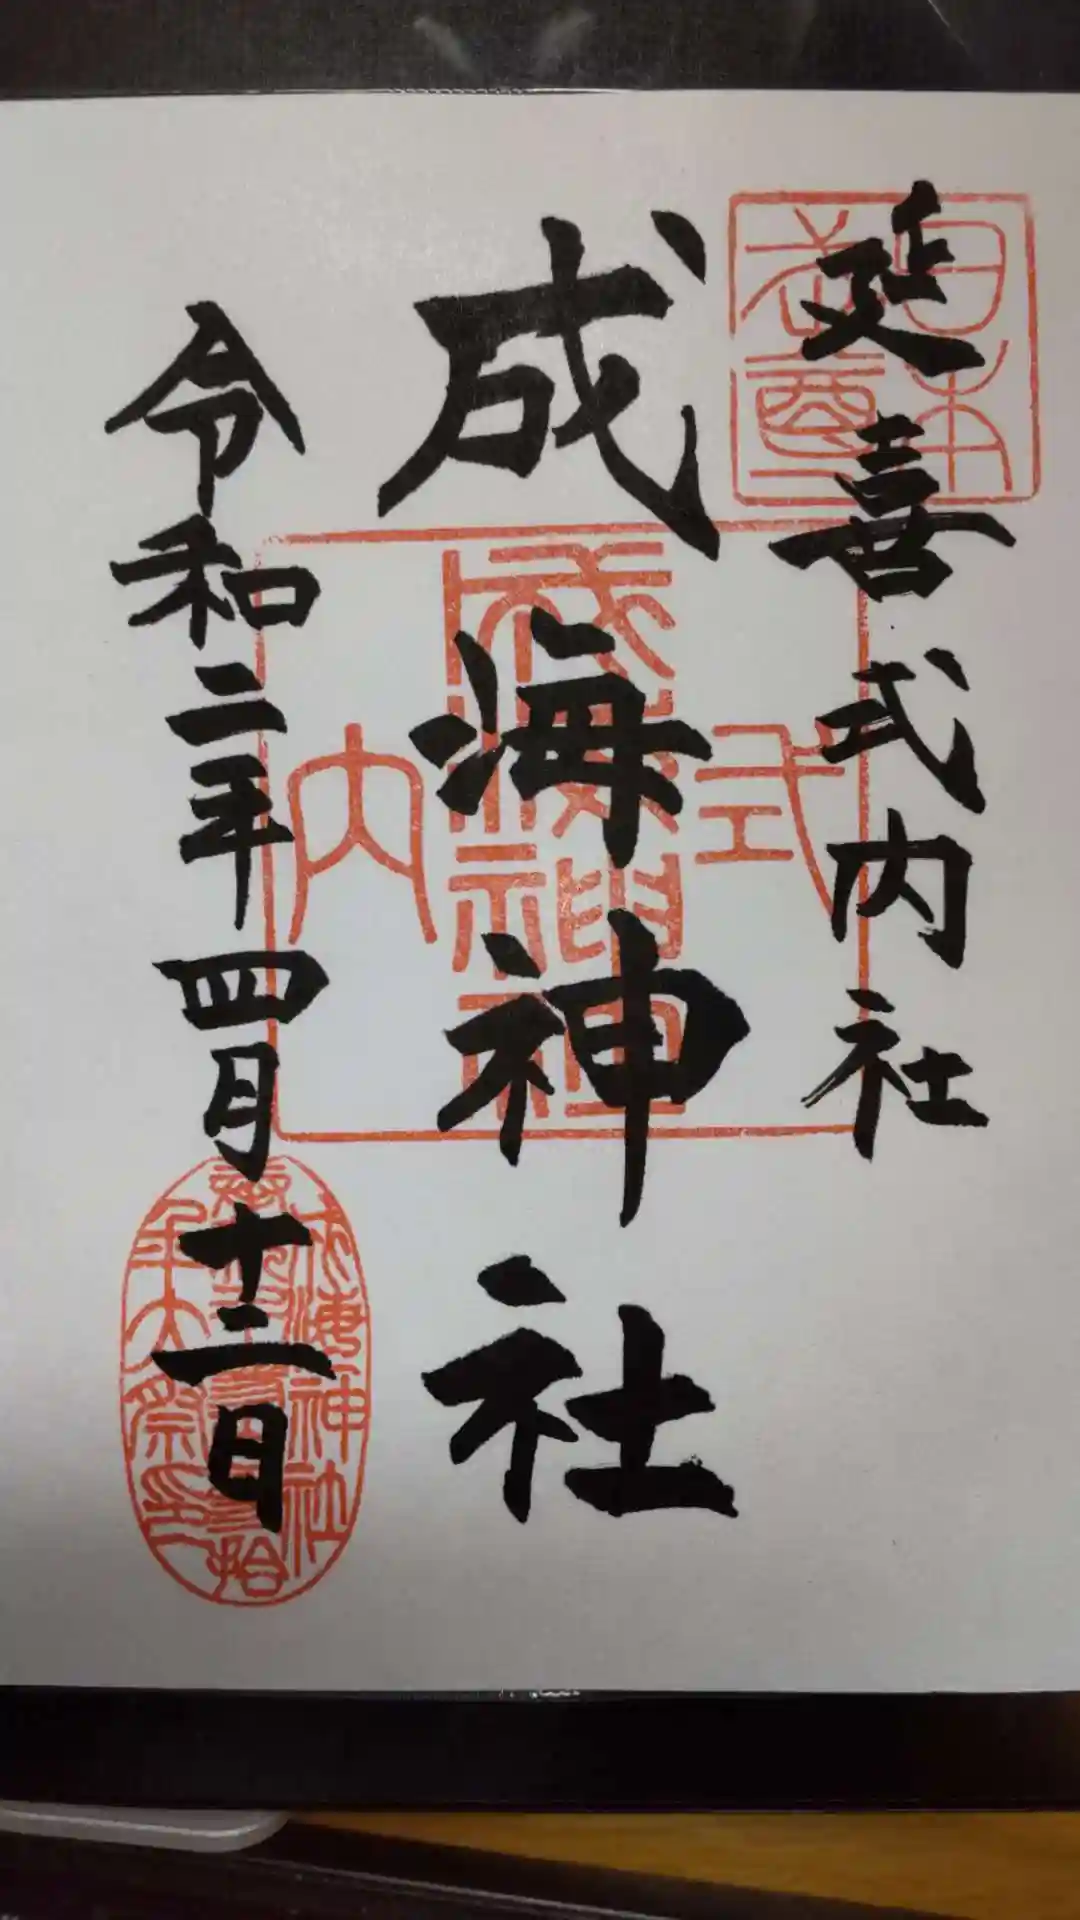 延喜式内社
成海神社
令和二年四月十二日
日本
武尊
式
成海神社
内
成海神社
年大祭